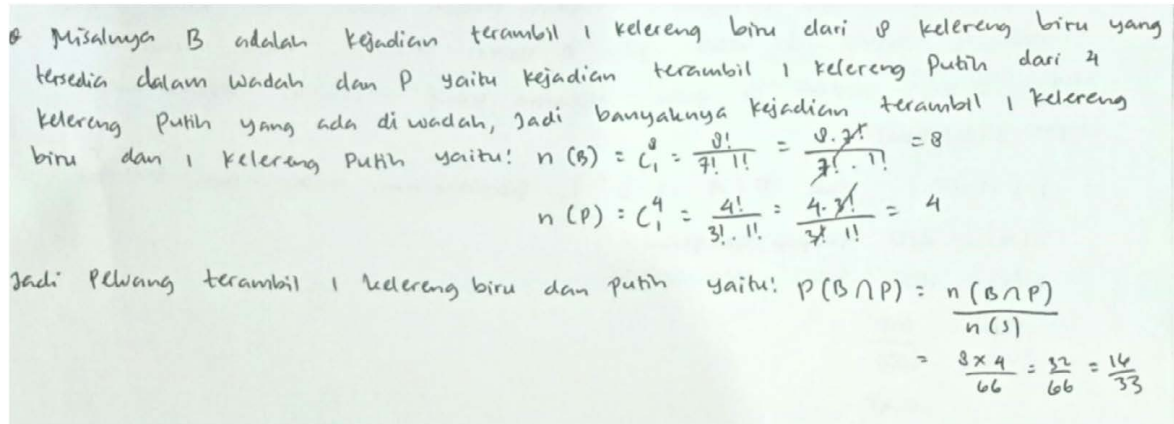 Misalnya B adalah kejadian terambil 1 kelereng biru dari 8 kelereng biru yang
tersedia dalam wadah dan P yaitu kejadian terambil 1 kelereng Putih dari 4
kelereng Putih yang ada di wadah, Jadi banyaknya kejadian terambil 1 kelereng
biru dan 1 kelereng Putih yaitu: n (B) = C₁⁸ = 8!/7! 1! = 8.7!/7!.1! = 8
n (P) = C₁⁴ = 4!/3!.1! = 4.3!/3! 1! = 4
Jadi Peluang terambil 1 kelereng biru dan putih yaitu: P(B∩P) = n(B∩P)/n(S)
= 8×4/66 = 32/66 = 16/33